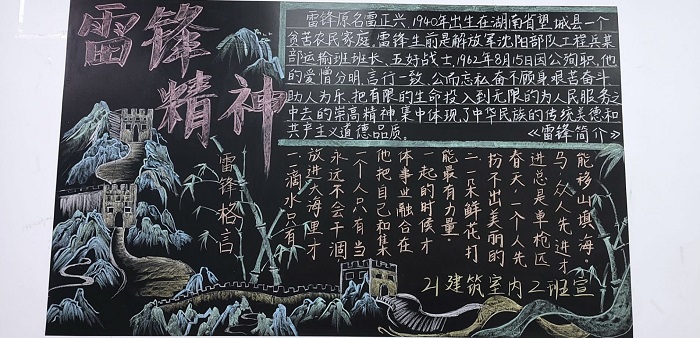 雷锋
精神
雷锋原名雷正兴,1940年出生在湖南省望城县一个
贫苦农民家庭。雷锋生前是解放军沈阳部队工程兵某
部运输班班长、五好战士,1962年8月15日因公殉职,他
的爱憎分明、言行一致、公而忘私奋不顾身艰苦奋斗
助人为乐、把有限的生命投入到无限的为人民服务之
中去的崇高精神集中体现了中华民族的传统美德和
共产主义道德品质。
《雷锋简介》
雷锋格言
一.滴水只有
放进大海里才
永远不会干涸
一个人只有当
他把自己和集
体事业融合在
一起的时候才
能最有力量.
二一朵鲜花打
扮不出美丽的
春天,一个人先
进总是单枪匹
马,众人先进才
能移山填海.
21建筑室内2班宣